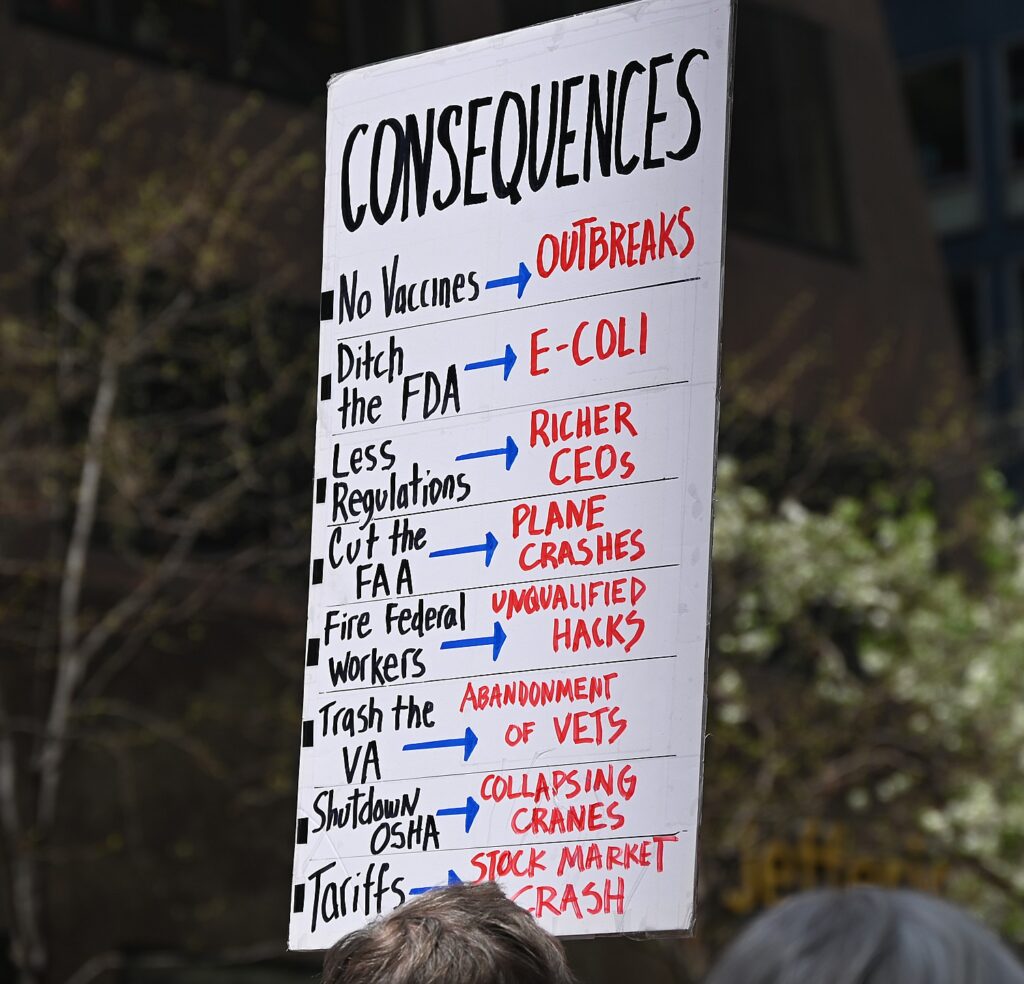 CONSEQUENCES
No Vaccines → OUTBREAKS
Ditch
the FDA → E-COLI
Less
Regulations → RICHER
CEOs
Cut the
FAA → PLANE
CRASHES
Fire Federal
workers → UNQUALIFIED
HACKS
Trash the
VA → ABANDONMENT
OF VETS
Shutdown
OSHA → COLLAPSING
CRANES
Tariffs → STOCK MARKET
CRASH